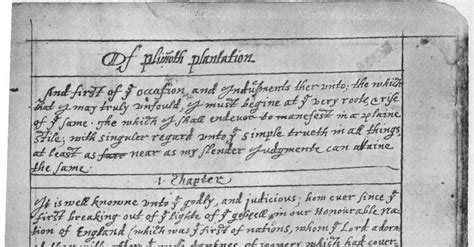 Of plimoth plantation
And first of yᵉ occasion, and Indusments ther unto; the which
that I may truly unfould, I must begine at yᵉ very roote, & rise
of yᵉ same. The which I shall endevor to manefest in a plaine
stile; with singuler regard unto yᵉ simple trueth in all things,
at least as near as my slender Judgmente can attaine
the same.
1. Chapter
It is well knowne unto yᵉ godly, and judicious; how ever since yᵉ
first breaking out of yᵉ lighte of yᵉ gospell, in our Honourable Na-
tion of England (which was yᵉ first of nations, whom yᵉ Lord adorn